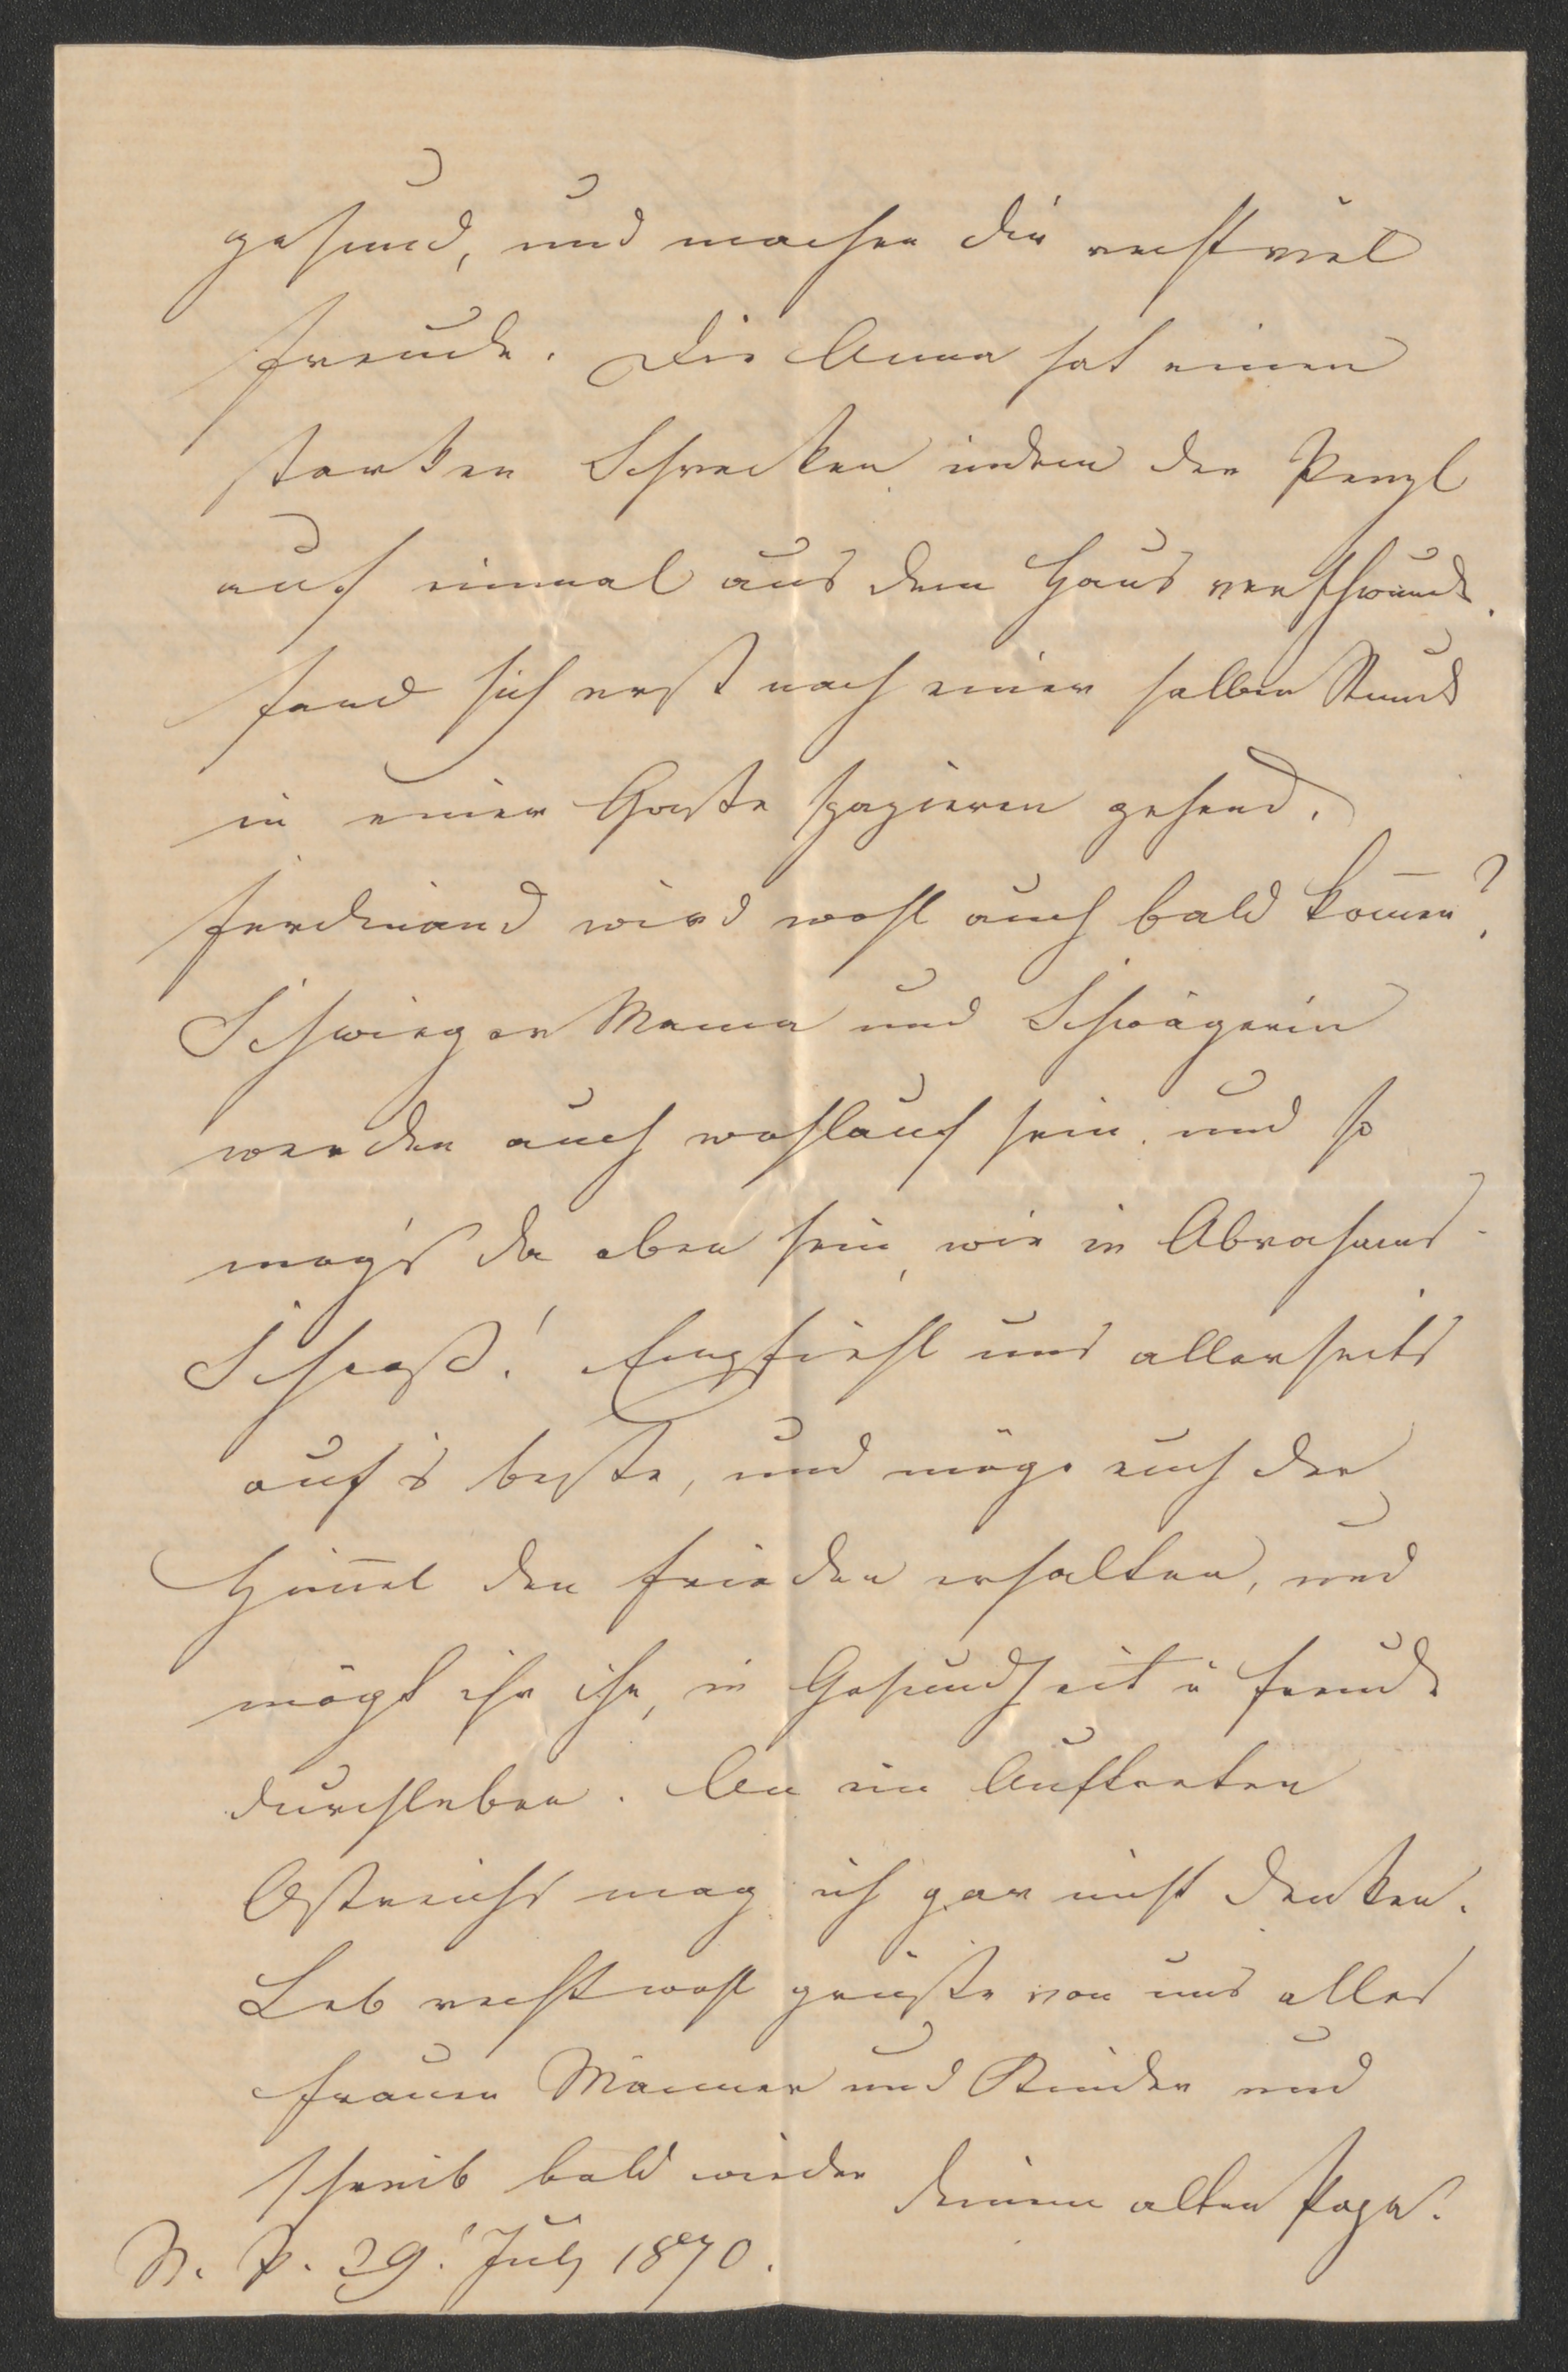 gesund, und machen dir recht viel
Freude. Die Anna hat einen
starken Schrecken indem der Penzl
auf einmal aus dem Haus verschwund.
fand sich erst nach einer halben Stunde
in einer Gasse spazieren gehend.
Ferdinand wird wohl auch bald kom̅en?
Schwieger Mama und Schwägerin
werden auch wohlauf sein. und so
mag's da oben sein, wie in Abrahams-
Schooß! Empfiehl uns allerseits
auf's beste, und möge euch der
Him̅el den Frieden erhalten, und
mögt ihr ihn, in Gesundheit u Freude
durchleben. An ein Auftreten
Östreichs mag ich gar nicht denken.
Leb recht wohl grüße von uns alles
Frauen Männer und Kinder und
schreib bald wieder deinem alten Papa.
N. P. 29. July 1870.